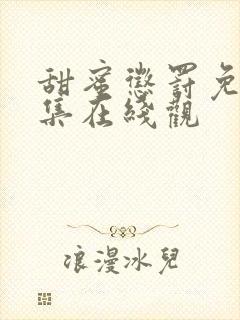 甜蜜懲罰免
集在綫觀
浪漫冰兒